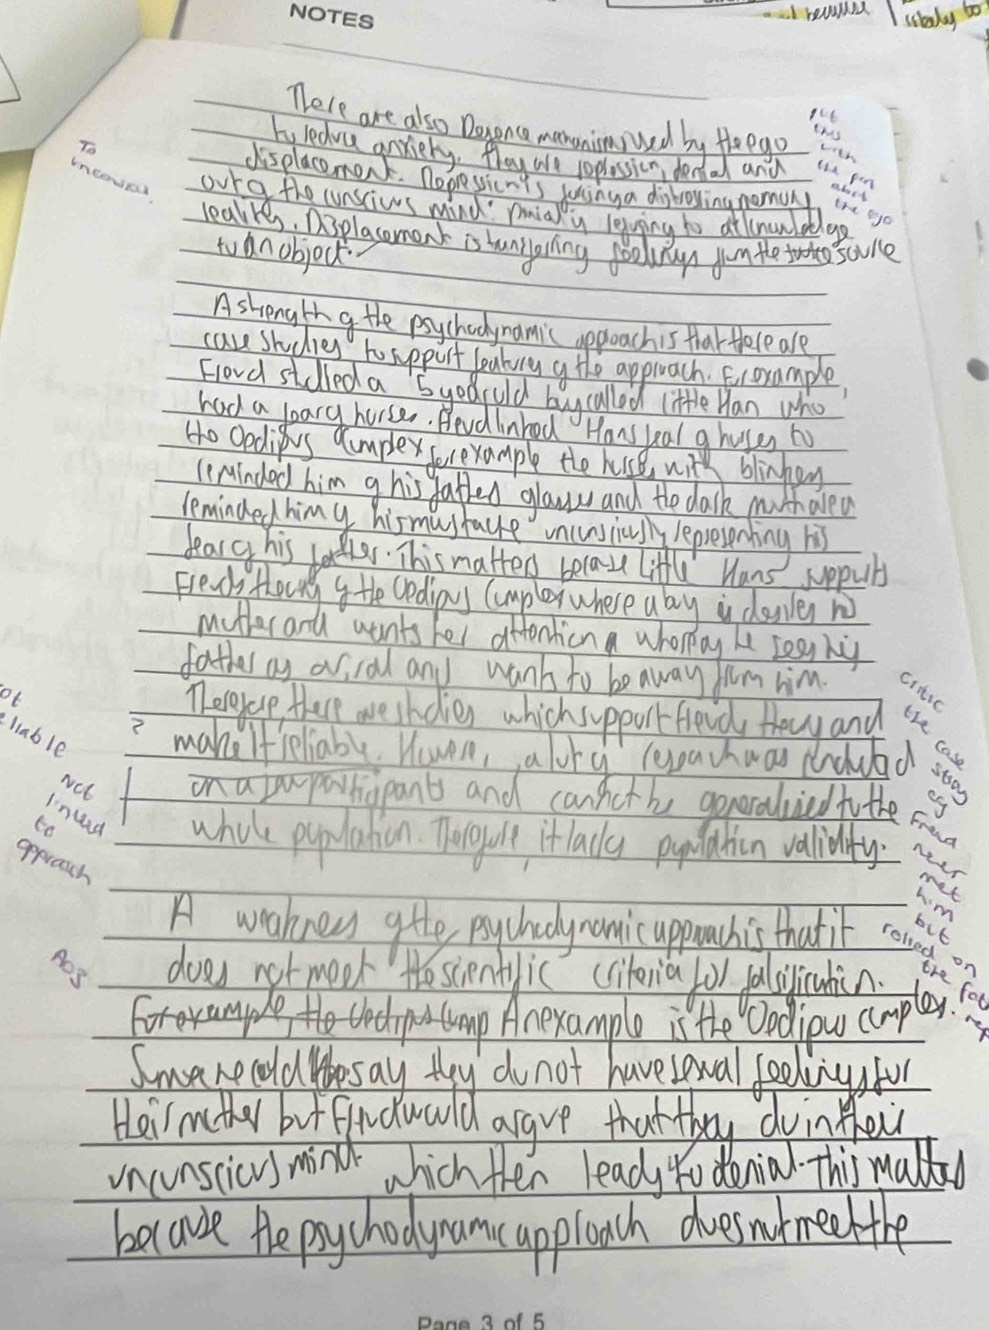 NOTES
because
likely to
There are also Defence mechanisms used by the ego
to reduce anxiety. They are repression, denial and
displacement. Repression is forcing a distressing memory
out of the conscious mind. Denial is refusing to acknowledge
reality. Displacement is transferring feelings from the true source
to an object.
To
unconscious
put
this
with
the
about
the ego
A strength of the psychodynamic approach is that there are
case studies to support features of the approach. For example,
Freud studied a 5 year old boy called Little Han who
had a fear of horses. Freud linked Hans fear of horses to
the Oedipus Complex for example the horses with blinkers
reminded him of his father glasses and the dark mouth area
reminded him of his mustache unconsciously representing his
fear of his father. This matters because Little Hans supports
Freuds theory of the Oedipus Complex where a boy desires his
mother and wants her attention he sees his
father as a rival and wants to be away from him.
Therefore, there are studies which support Freuds theory and
make it reliable. However, a lot of research was conducted
on a participants and cannot be generalised to the
whole population. Therefore, it lacks population validity.
not
reliable
?
Not
linked
to
approach
critic
the case
study
eg
Freud
never
met
him
but
relied on
the
A weakness of the psychodynamic approach is that it
does not meet the scientific criteria for falsification.
For example, the Oedipus Comp An example is the Oedipus complex.
Someone could say they do not have sexual feelings for
their mother but Freud would argue that they do in their
unconscious mind which then leads to denial. This matters
because the psychodynamic approach does not meet the
Page 3 of 5